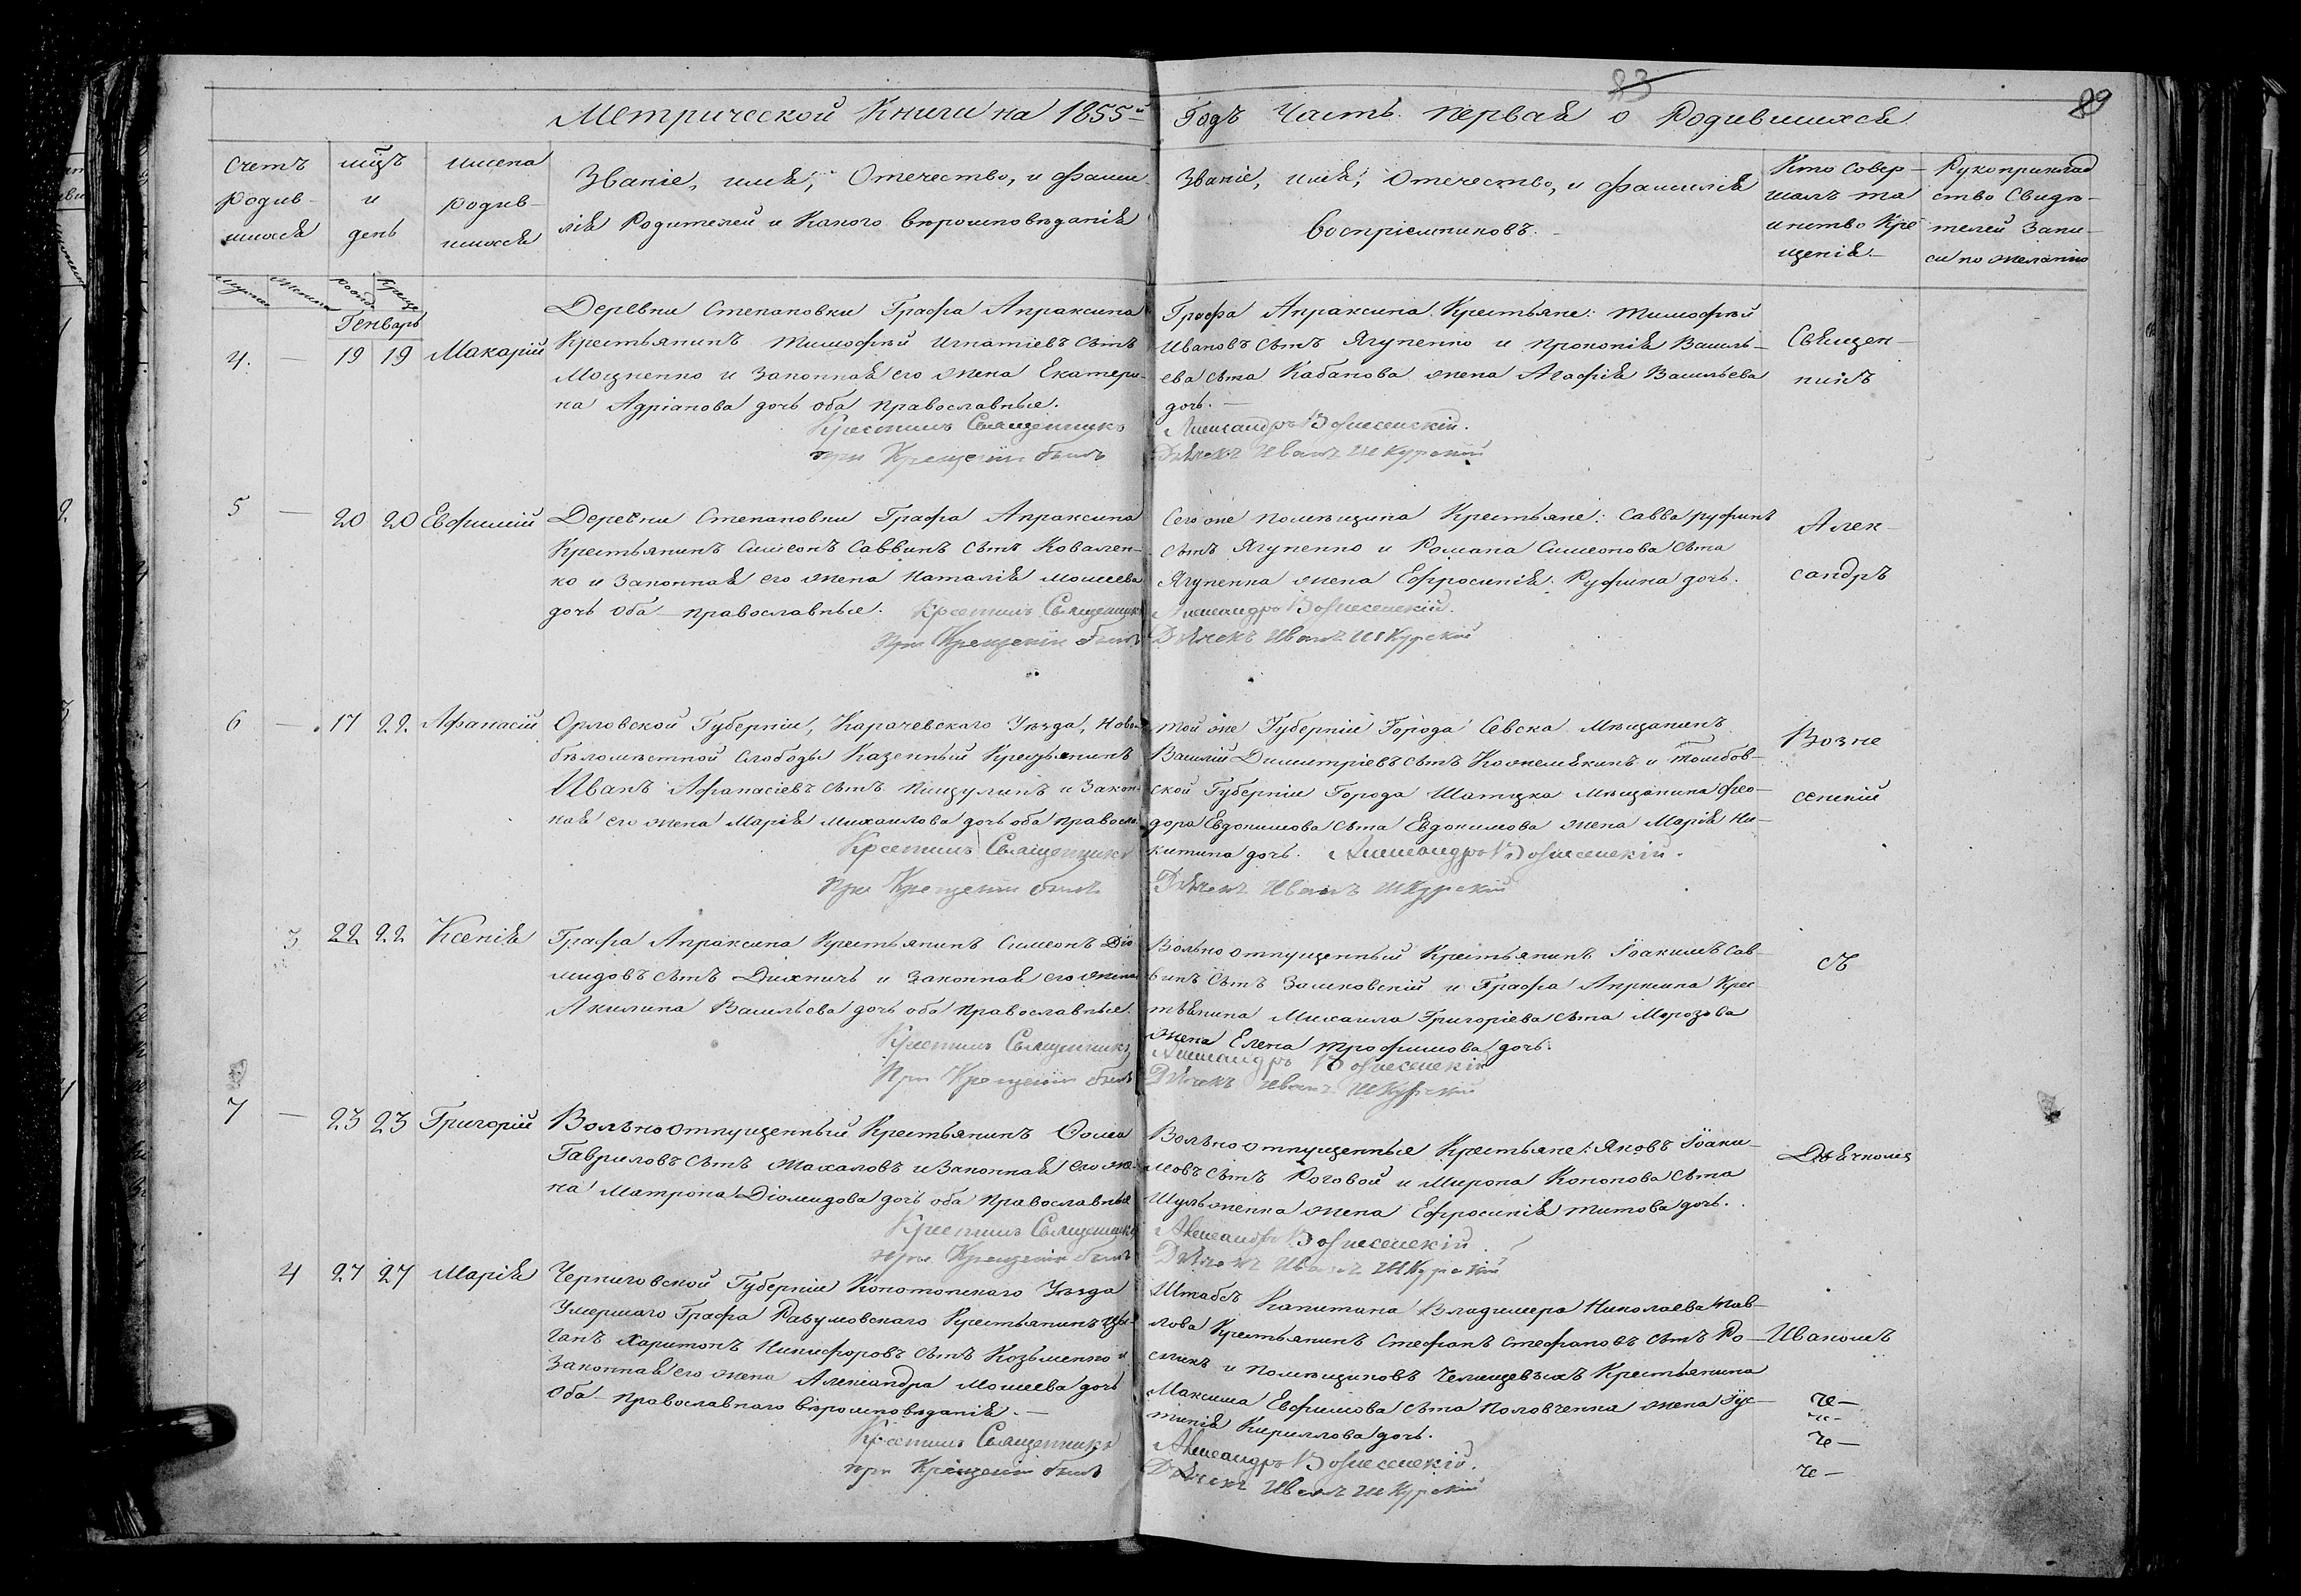 83
89
Метрической Книги на 1855й Годъ Часть первая о Родившихся
Счетъ родив-шихся
мцъ и день
имена родив-шихся
Званіе, имя, Отечество, и фами-
лія Родителей и Какого вѣроисповѣданія
Званіе, имя, Отечество, и фамилія
Воспріемниковъ.
Кто совер-
шалъ та
инство Кре
щенія.
Рукоприклад
ство Свидѣ-
телей Запи-
си по желанію
Генварь
4. — 19 19 Макарій
Деревни Степановки Графа Апраксина
Крестьянинъ Тимофѣй Игнатіевъ сынъ
Мощненко и Законная его жена Екатери-
на Адріанова дочь оба православные.
Крестилъ Священникъ
при Крещеніи былъ
Графа Апраксина Крестьяне: Тимофѣй
Ивановъ сынъ Ягупенко и Прокопія Василь-
ева сына Кабанова жена Агафія Васильева
дочь. —
Александръ Вознесенскій.
Дьячекъ Иванъ Шкурскій
Священ-
никъ
5 — 20 20 Евфимій
Деревни Степановки Графа Апраксина
Крестьянинъ Симеонъ Саввинъ сынъ Ковален-
ко и Законная его жена Наталія Моисеева
дочь оба православные. Крестилъ Священникъ
при Крещеніи былъ
Сего же помѣщика Крестьяне: Савва Руфинъ
сынъ Ягупенко и Романа Симеонова сына
Ягупенка жена Ефросинія Руфина дочь.
Александръ Вознесенскій.
Дьячекъ Иванъ Шкурскій
Алек-
сандръ
6 — 17 22 Афанасій
Орловской Губерніи, Карачевскаго Уѣзда, Ново-
бѣломѣстной Слободы Казенный Крестьянинъ
Иванъ Афанасіевъ сынъ Пищулинъ и Закон-
ная его жена Марія Михаилова дочь оба правосла.
Крестилъ Священникъ
при Крещеніи былъ
той же Губерніи Города Севска Мѣщанинъ
Василій Димитріевъ сынъ Кожемякинъ и Тамбов-
ской Губерніи Города Шатцка Мѣщанина Фео-
дора Евдокимова сына Евдокимова жена Марія Ни-
китина дочь. Александръ Вознесенскій.
Дьячекъ Иванъ Шкурскій
Возне
сенскій
3 22 22 Ксенія
Графа Апраксина Крестьянинъ Симеонъ Діо
мидовъ сынъ Дихничъ и Законная его жена
Акилина Васильева дочь оба православные.
Крестилъ Священникъ
При Крещеніи былъ
Вольноотпущенный Крестьянинъ Іоакимъ Сав-
винъ сынъ Замковскій и Графа Апркина Крес-
тьянина Михаила Григоріева сына Морозова
жена Елена Трофимова дочь.
Александръ Вознесенскій
Дьячекъ Иванъ Шкурскій
съ
7 — 23 23 Григорій
Вольноотпущенный Крестьянинъ Ѳома
Гавриловъ сынъ Махаловъ и Законная его же-
на Матрона Діомидова дочь оба православные
Крестилъ Священникъ
при Крещеніи былъ
Вольноотпущенные Крестьяне: Яковъ Іоаки-
мовъ сынъ Роговой и Мирона Кононова сына
Шульженка жена Ефросинія Титова дочь.
Александръ Вознесенскій.
Дьячекъ Иванъ Шкурскій
Дьячкомъ
4 27 27 Марія
Черниговской Губерніи Конотопскаго Уѣзда
Умершаго Графа Разумовскаго Крестьянинъ Цы-
ганъ Харитонъ Никифоровъ сынъ Козьменко и
Законная его жена Александра Моисеева дочь
Оба православнаго вѣроисповѣданія. —
Крестилъ Священникъ
при Крещеніи былъ
Штабсъ Капитана Владимера Николаева Пав-
лова Крестьянинъ Стефанъ Стефановъ сынъ
и помѣщиковъ Челищевыхъ Крестьянина
Максима Евфимова сына Половченка жена Іус-
тинія Кириллова дочь.
Александръ Вознесенскій.
Дьячекъ Иванъ Шкурскій
Иваномъ